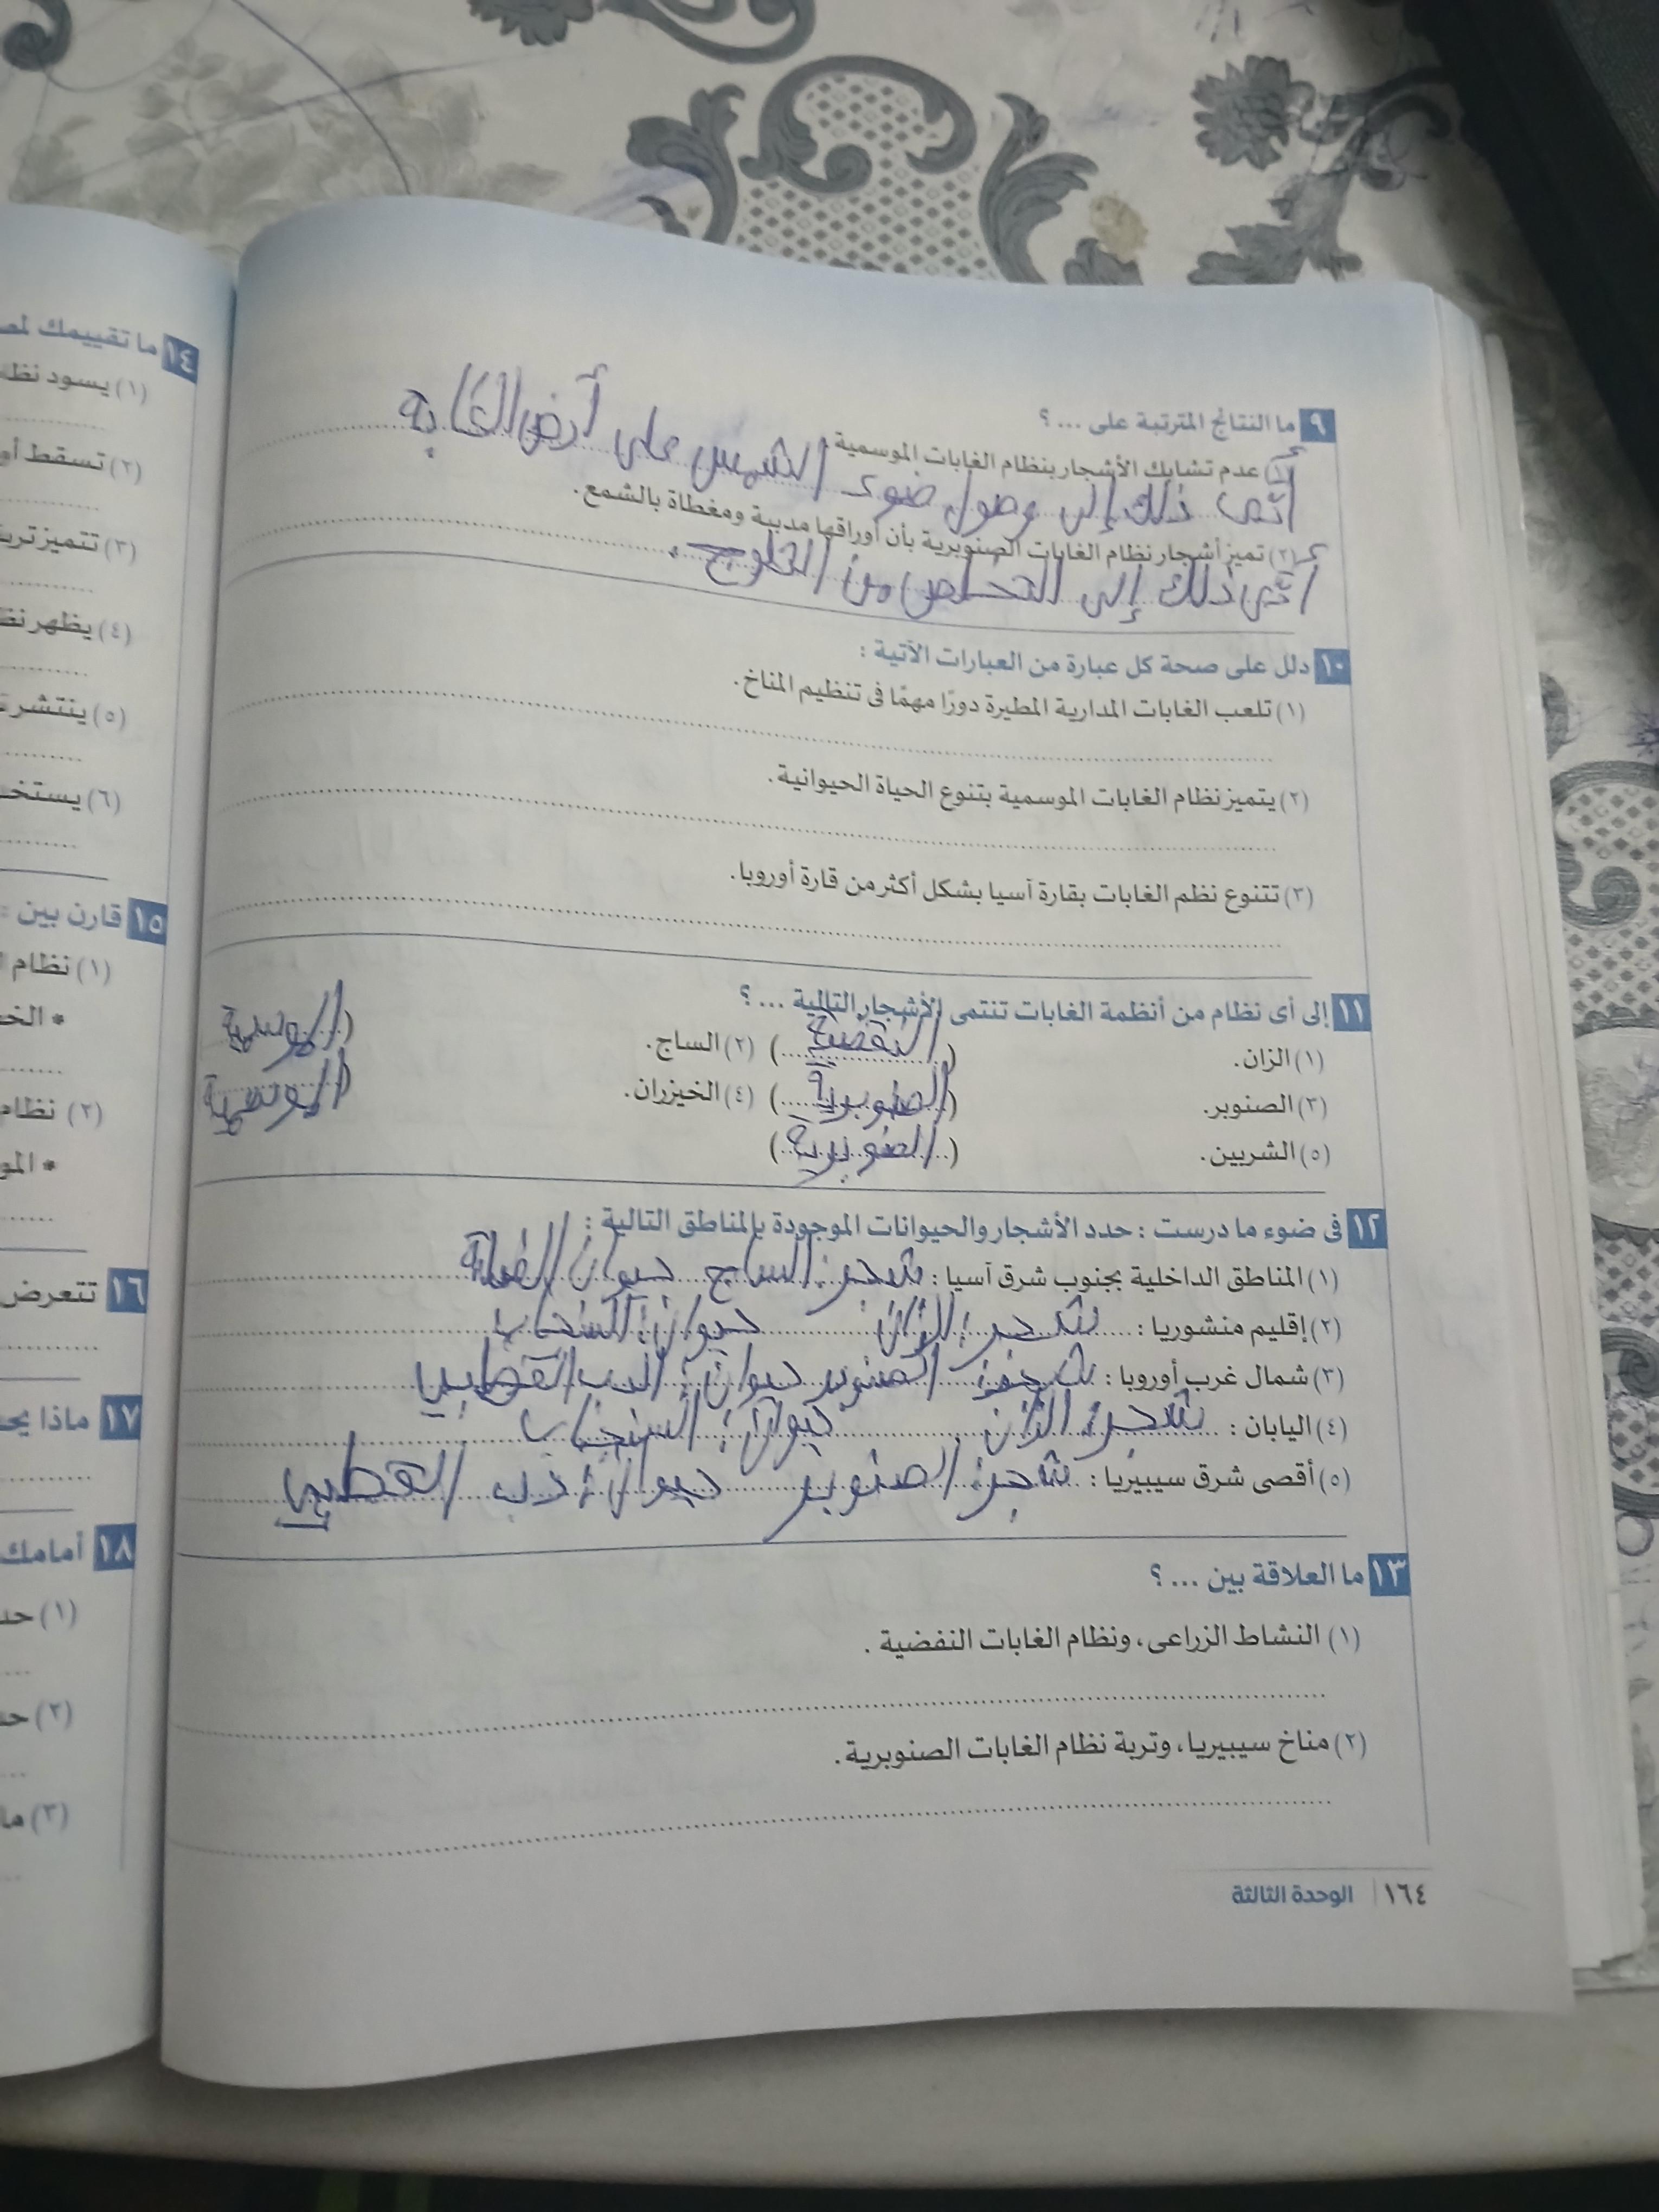 ٩ ما النتائج المترتبة على ... ؟
(١) عدم تشابك الأشجار بنظام الغابات الموسمية.
أدى ذلك إلى وصول ضوء الشمس على أرض الغابة
(٢) تميز أشجار نظام الغابات الصنوبرية بأن أوراقها مدببة ومغطاة بالشمع.
أدى ذلك إلى التخلص من الثلوج.
١٠ دلل على صحة كل عبارة من العبارات الآتية :
(١) تلعب الغابات المدارية المطيرة دورًا مهمًا فى تنظيم المناخ.
(٢) يتميز نظام الغابات الموسمية بتنوع الحياة الحيوانية.
(٣) تتنوع نظم الغابات بقارة آسيا بشكل أكثر من قارة أوروبا.
١١ إلى أى نظام من أنظمة الغابات تنتمى الأشجار التالية ... ؟
(١) الزان. (النفضية) (٢) الساج. (الموسمية)
(٣) الصنوبر. (الصنوبرية) (٤) الخيزران. (الموسمية)
(٥) الشربين. (الصنوبرية)
١٢ فى ضوء ما درست : حدد الأشجار والحيوانات الموجودة بالمناطق التالية :
(١) المناطق الداخلية بجنوب شرق آسيا : شجر: الساج حيوان:
(٢) إقليم منشوريا : شجر: الزان حيوان: السنجاب
(٣) شمال غرب أوروبا : شجر: الصنوبر حيوان: الدب القطبي
(٤) اليابان : شجر: الزان حيوان: السنجاب
(٥) أقصى شرق سيبيريا : شجر: الصنوبر حيوان: دب القطبي
١٣ ما العلاقة بين ... ؟
(١) النشاط الزراعى، ونظام الغابات النفضية .
(٢) مناخ سيبيريا، وتربة نظام الغابات الصنوبرية.
١٦٤ | الوحدة الثالثة
١٤ ما تقييمك
(١) يسود
(٢) تسقط
(٣) تتميز
(٤) يظهر
(٥) ينتشر
(٦)
١٥ قارن بين :
(١) نظام
*
(٢) نظام
*
١٦ تتعرض
١٧ ماذا
١٨ أمامك
(١)
(٢)
(٣) ما